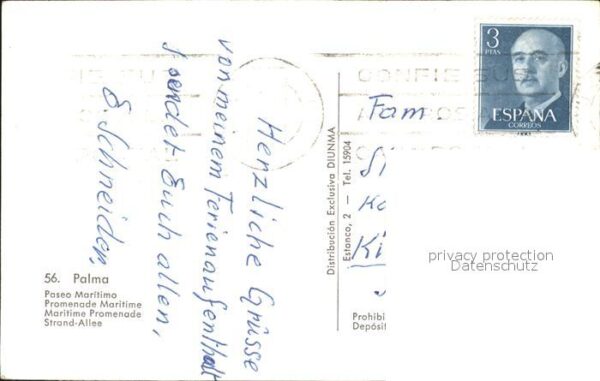 Herzliche Grüsse
von meinem Ferienaufenthalt
sendet Euch allen,
E. Schneider,
56. Palma
Paseo Marítimo
Promenade Maritime
Maritime Promenade
Strand-Allee
Distribución Exclusiva DIUNMA
Estanco, 2 - Tel. 15904
3
PTAS
ESPAÑA
CORREOS
CONFIE SUS
Fam
Ki
privacy protection
Datenschutz
Prohibi
Depósit